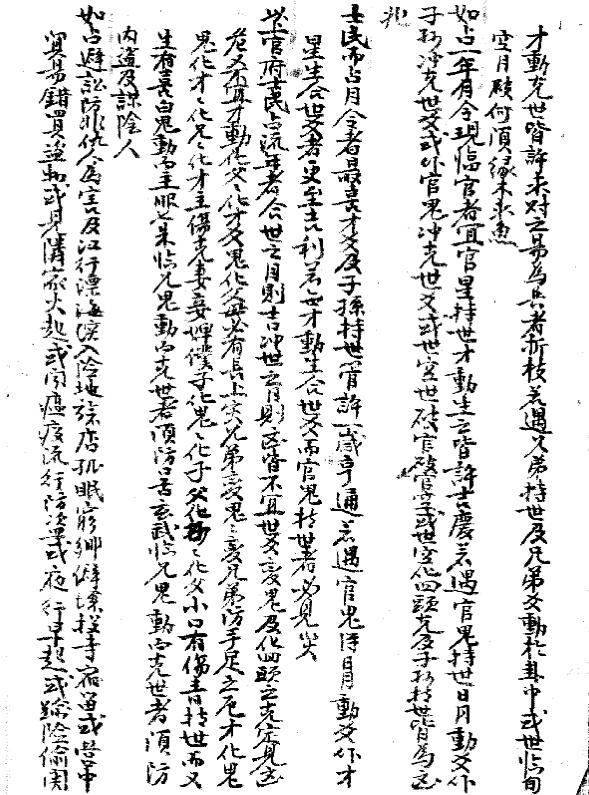 才動克世皆許求財之易為兵者折枝若遇兄弟持世及兄弟爻動於卦中或世臨旬
空月破何須緣木求魚
如占一年月令現臨官者宜官星持世才動生之皆許吉慶若遇官鬼持世日月動爻作
子孫冲克世爻或作官鬼冲克世爻或世空世破官破官空或世空化回頭克及子孫持世皆為凶
兆
士民而占月令者最喜才爻及子孫持世皆許一歲亨通若遇官鬼浮日月動爻作才
星生合世爻者更至吉利若世才動生合世爻而官鬼持世者必見災
凡官府士民占流年者合世之月則吉冲世之月則凶皆不宜世爻變鬼及化回頭之克定見凶
危又不宜才動化父父化才父鬼化父母必有長上災兄弟變鬼鬼變兄弟防手足之危才化鬼
鬼化才才化兄兄化才主傷克妻妾婢僕子化鬼鬼化子父化孫孫化父小口有傷青持世而又
生者喜白鬼動而主服七朱臨兄鬼動而克世者須防口舌玄武臨兄鬼動而克世者須防
內盜及謀陰人
如占避訟防非仇人為害及江行漂海深入險地孤店孤眠窮鄉僻壤投寺宿留或營中
貿易錯買盜物或見隣家火起或聞瘟疫流行防染或夜行早起或踰險偷関